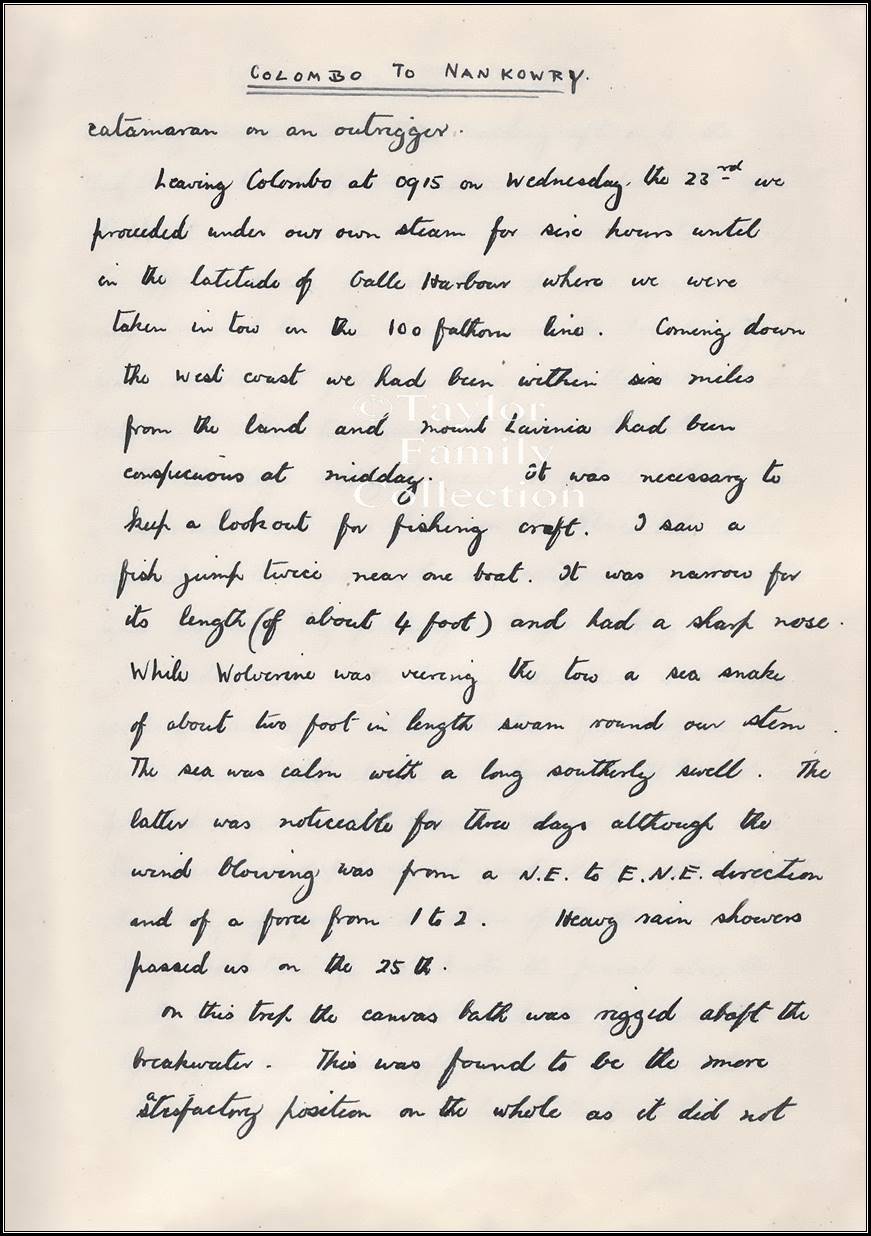 COLOMBO TO NANKOWRY.
catamaran on an outrigger.
Leaving Colombo at 0915 on Wednesday, the 23rd we
proceeded under our own steam for six hours until
in the latitude of Galle Harbour where we were
taken in tow in the 100 fathom line. Coming down
the West coast we had been within six miles
from the land and Mount Lavinia had been
conspicuous at midday. It was necessary to
keep a lookout for fishing craft. I saw a
fish jump twice near one boat. It was narrow for
its length (of about 4 foot) and had a sharp nose.
While Wolverine was veering the tow a sea snake
of about two foot in length swam round our stem.
The sea was calm with a long southerly swell. The
latter was noticeable for three days although the
wind blowing was from a N.E. to E.N.E. direction
and of a force from 1 to 2. Heavy rain showers
passed us on the 25th.
On this trip the canvas bath was rigged abaft the
breakwater. This was found to be the more
satisfactory position on the whole as it did not
©Taylor
Family
Collection